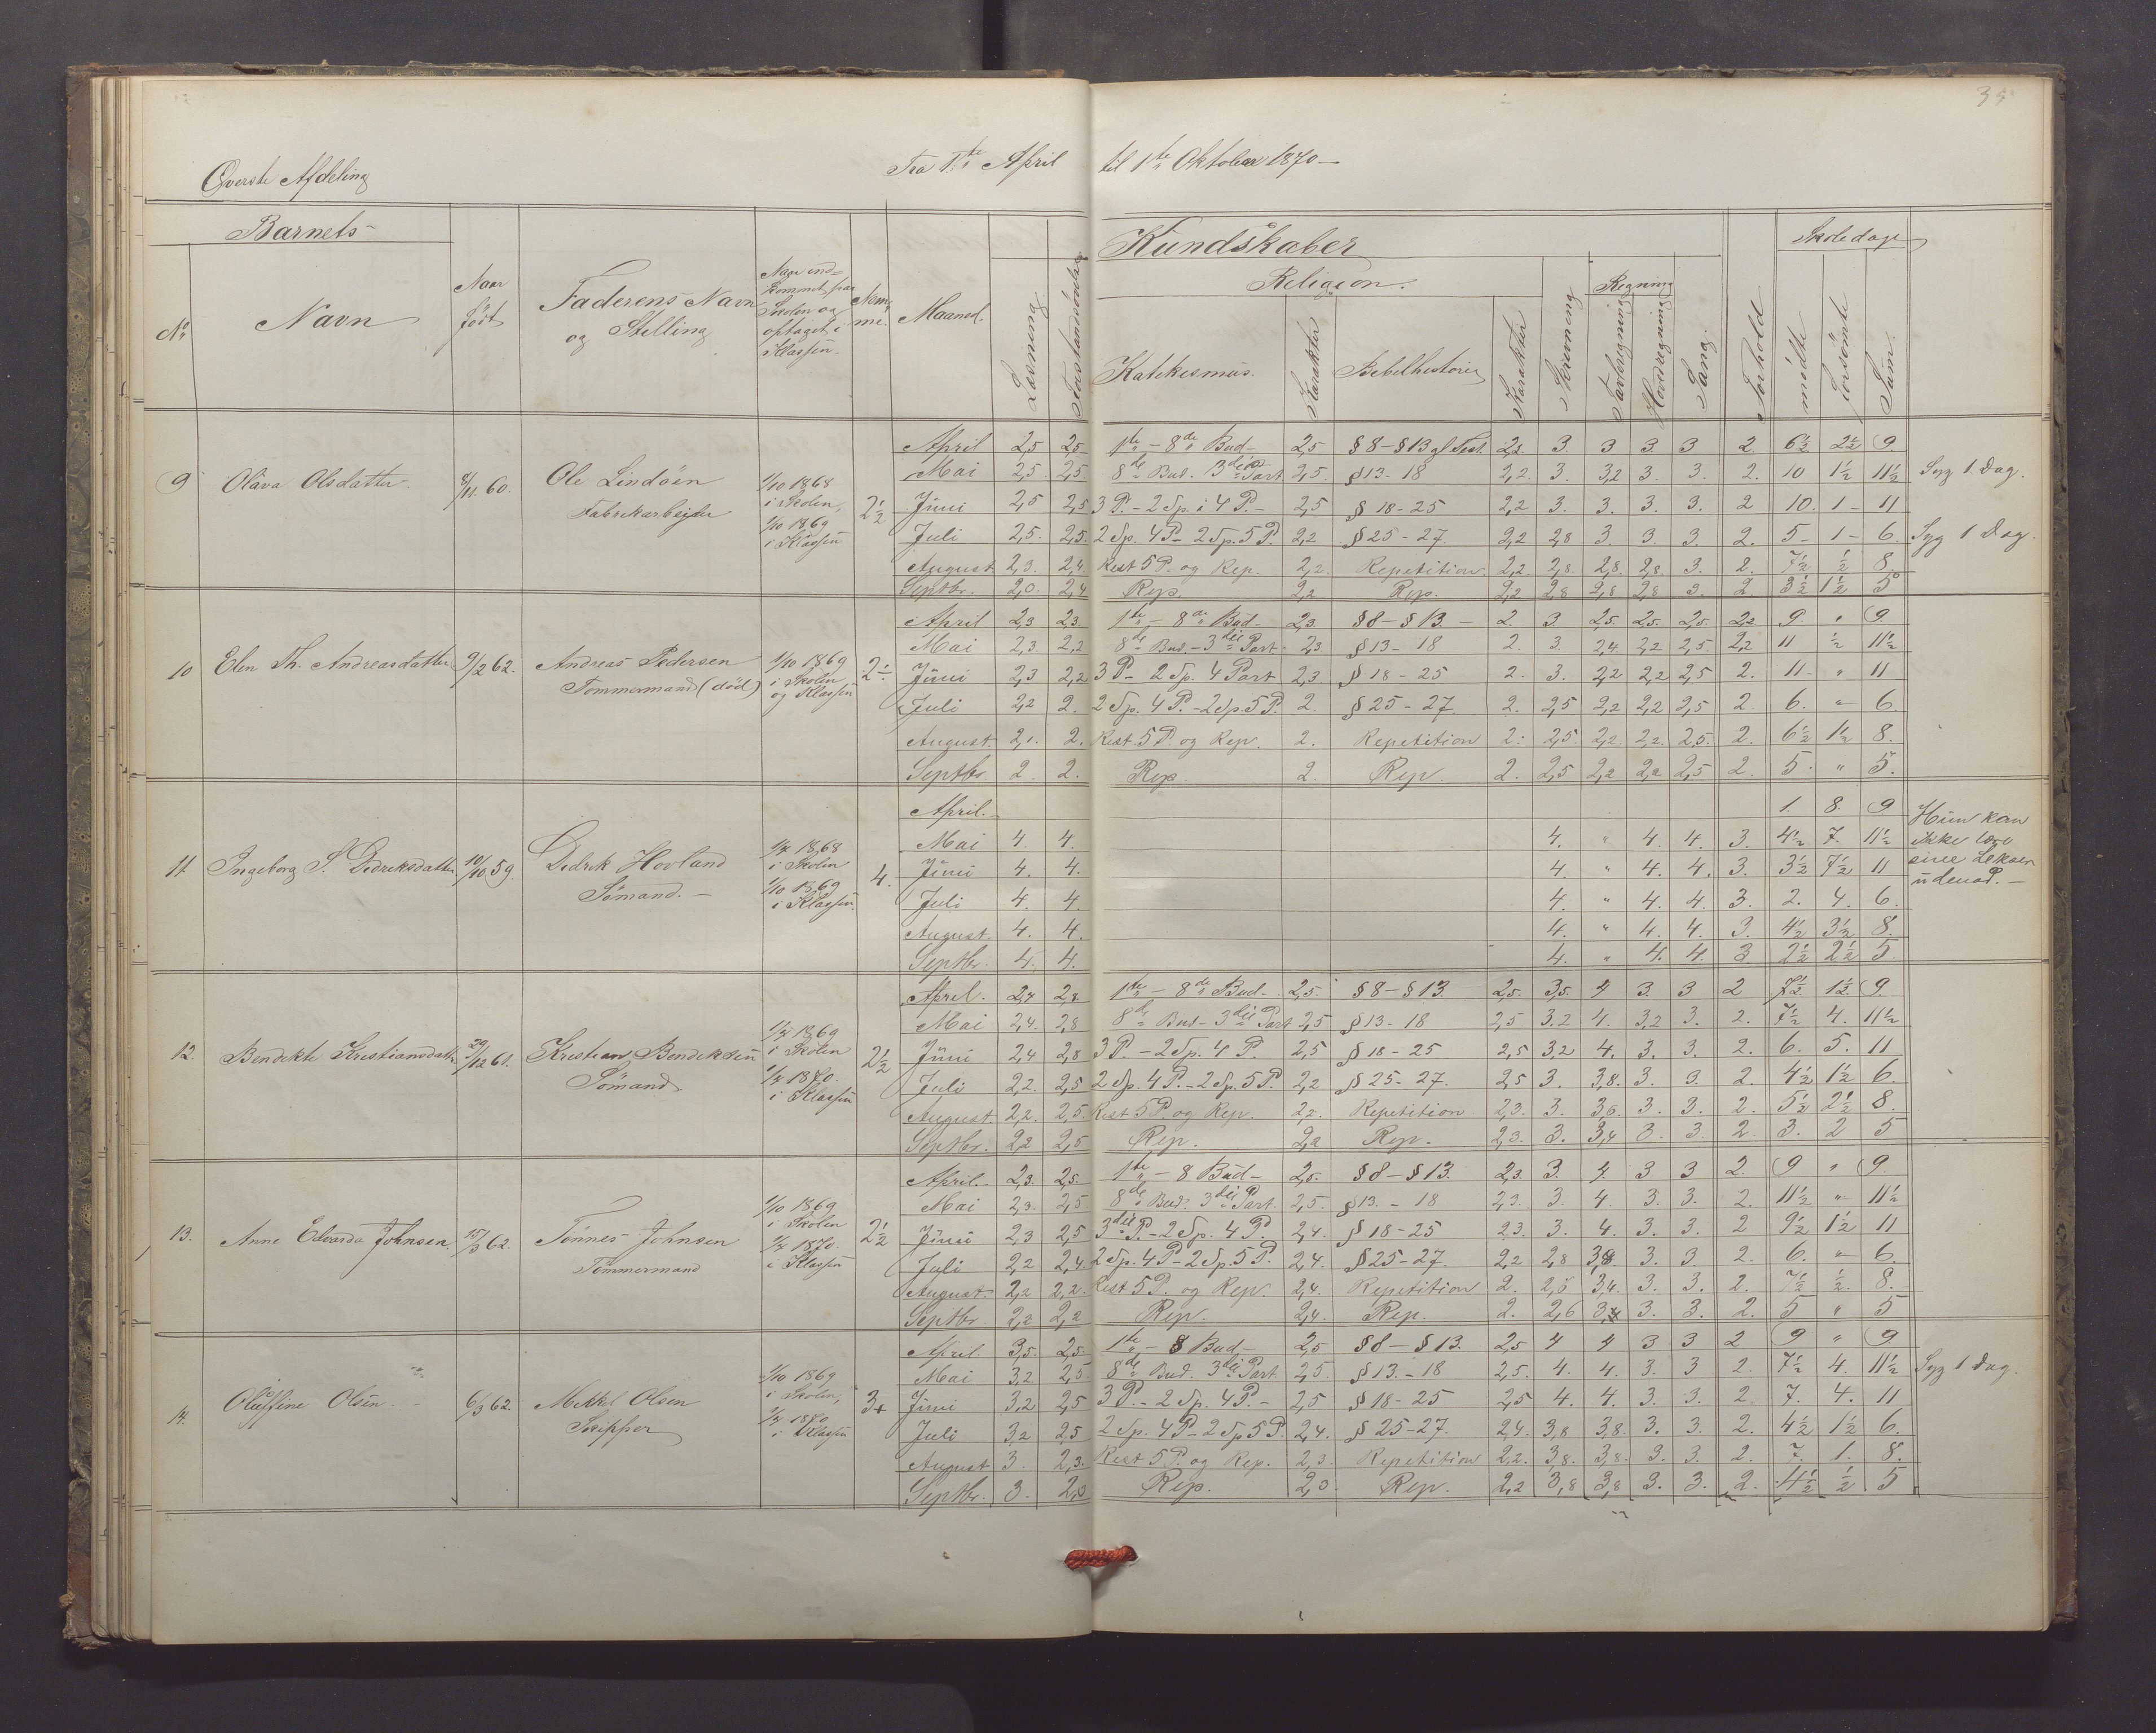 35
Øverste Afdeling
Fra 1ste April til 1ste Oktober 1870 —
Barnets
Kundskaber
Skoledage
Religion.
Regning
No
Navn
Naar født
Faderens Navn og Stilling
Naar ind=
kommet paa
Skolen og
optaget i
Klassen.
Nem=
me.
Maaned.
Læsning
Katekismus.
Karakter
Bibelhistorie
Karakter
Skrivning
Tavleregning
Hovedregning
Sang.
Forhold
mødte
forsømte
Sum
April 2,5 2,5 1ste — 8de Bud — 2,5 § 8 — § 13 gl. Test. 2,2. 3. 3 3 3 2 6½ 2½ 9.
9 Olava Olsdatter. 8/11 60. Ole Lindöen Fabrikarbeider 1/10 1868 i Skolen, 1/10 1869 i Klassen 2½
Mai 2,5 2,5 8de Bud. 3die Part 2,5. § 13 - 18 2,2 3. 3,2 3. 3. 2. 10 1½ 11½ Syg 1 Dag.
Juni 2,5 2,5 3 P. — 2 Sp. i 4 P. — 2,5 § 18 - 25 2,2 3. 3. 3. 3. 2 10. 1 — 11
Juli 2,5. 2,5. 2 Sp. 4 P — 2 Sp. 5 P. 2,2 § 25 - 27. 2,2 2,8 3. 3. 3. 2. 5 — 1 — 6. Syg 1 Dag.
August 2,3. 2,4. Rest 5 P. og Rep. 2,2. Repetition 2,2. 2,8. 2,8. 2,8. 3. 2. 7½ ½ 8.
Septbr. 2,0. 2,4 Rep. 2,2 Rep. 2,2 2,8 2,8 2,8 3. 2 3½ 1½ 5
April 2,3 2,3. 1ste — 8de Bud — 2,3. § 8 — § 13. — 2. 3. 2,5. 2,5. 2,5. 2,2 9. " 9.
10 Elen Th. Andreasdatter 9/2 62. Andreas Pedersen Tømmermand (død) 1/10 1869 i Skolen og Klassen
Mai 2,3. 2,2 8de Bud. — 3die Part 2,3. § 13 - 18 2. 3. 2,4. 2,2 2,5. 2,2 11 ½ 11½
Juni 2,3 2,2 3 P — 2 Sp. 4 Part 2,3. § 18 - 25 2. 3. 2,2 2,2 2,5 2. 11. " 11
Juli 2,2 2. 2 Sp. 4 P. — 2 Sp. 5 P. 2. § 25 - 27 2. 2,5 2,2 2,2 2,5 2. 6. " 6.
August. 2,1. 2. Rest. 5 P. og Rep. 2. Repetition 2. 2,5. 2,2. 2,2. 2,5. 2. 6½ 1½ 8.
Septbr 2. 2. Rep. 2. Rep. 2. 2,5 2,2 2,2 2,5 2. 5. " 5.
April. 1. 8. 9 Hun kan
11 Ingeborg S. Didriksdatter 10/10 59. Didrik Hovland Sømand. — 1/4 1868 i Skolen 1/10 1869 i Klassen. 4.
Mai 4. 4. 4. " 4. 4. 3. 4½ 7. 11½ ikke lære
Juni 4. 4. 4. " 4. 4. 3. 3½ 7½ 11 sine Lekser
Juli 4. 4. 4. " 4. 4. 3. 2. 4. 6. udenad. —
August. 4. 4. 4. " 4. 4. 3. 4½ 3½ 8.
Septbr. 4. 4. 4. " 4. 4. 3 2½ 2½ 5
April. 2,4 2,8. 1ste — 8de Bud. — 2,5. § 8 — § 13. 2,5. 3,5. 4 3. 3 2 7½ 1½ 9.
12. Bendikte Kristiansdatter 29/12 61. Kristian Bendiksen Sømand 1/4 1869 i Skolen 1/4 1870. i Klassen 2½
Mai 2,4. 2,8 8de Bud — 3die Part 2,5 § 13 - 18 2,5 3,2 4. 3,2 3. 2. 7½ 4. 11½
Juni 2,4 2,8 3 P. — 2 Sp. 4 P. 2,5 § 18 - 25 2,5 3,2 4. 3. 3. 2. 6. 5. 11
Juli 2,2. 2,5 2 Sp. 4 P. — 2 Sp. 5 P. 2,2 § 25 - 27. 2,5 3. 3,8. 3. 3. 2. 4½ 1½ 6.
August. 2,2. 2,5 Rest 5 P. og Rep. 2,2. Repetition 2,3. 3. 3,6. 3. 3. 2. 5½ 2½ 8.
Septbr. 2,2 2,5 Rep. 2,2 Rep. 2,3. 3. 3,4 3. 3. 2. 3. 2 5
April. 2,3. 2,5. 1ste — 8 Bud — 2,5. § 8 — § 13. 2,3. 3. 4. 3 3 2. 9 " 9.
13. Anne Edvarda Johnsen. 15/3 62. Tönnes Johnsen Tömmermand 1/10 1869 i Skolen 1/4 1870. i Klassen 2½
Mai 2,3. 2,5 8de Bud. 3die Part. 2,5. § 13. - 18 2,3. 3. 4. 3. 3. 2. 11½ " 11½
Juni 2,3 2,5 3die P. — 2 Sp. 4 P. 2,4. § 18 - 25 2,3. 3. 4. 3. 3. 2 9½ 1½ 11
Juli 2,2 2,4. 2 Sp. 4 P — 2 Sp. 5 P. 2,4. § 25 - 27. 2,2 2,8 3,8. 3. 3. 2. 6. " 6.
August. 2,2 2,2. Rest 5 P. og Rep. 2,4. Repetition 2. 2,8 3,4. 3. 3. 2. 7½ ½ 8.
Septbr. 2,2 2,2 Rep. 2,4. Rep. 2. 2,6 3,4 3. 3. 2. 5 " 5
April. 3,5. 2,5. 1ste — 8 Bud — 2,5 § 8 — § 13. 2,5 4 4 3 3 2 9 " 9.
14. Oluffine Olsen. 6/3 62. Mikkel Olsen Skipper 1/10 1869 i Skolen, 1/4 1870 i Klassen 3+
Mai 3,2 2,5 8de Bud. 3die Part. 2,5 § 13. - 18 2,5. 4. 4. 3. 3 2. 7½ 4. 11½ Syg 1 Dag.
Juni 3,2 2,5 3 P. — 2 Sp. 4 P. — 2,5 § 18 - 25 2,5 4. 4. 3. 3. 2. 7. 4. 11
Juli 3,2 2,5 2 Sp. 4 P — 2 Sp 5 P. 2,4. § 25 - 27. 2,4. 3,8 3,8. 3. 3. 2. 4½ 1½ 6.
August 3. 2,3. Rest 5 P. og Rep. 2,3. Repetition 2,2. 3,8. 3,8. 3. 3. 2. 7. 1. 8.
Septbr. 3. 2,3 Rep. 2,3 Rep. 2,2 3,8 3,8 3. 3. 2. 4½ ½ 5